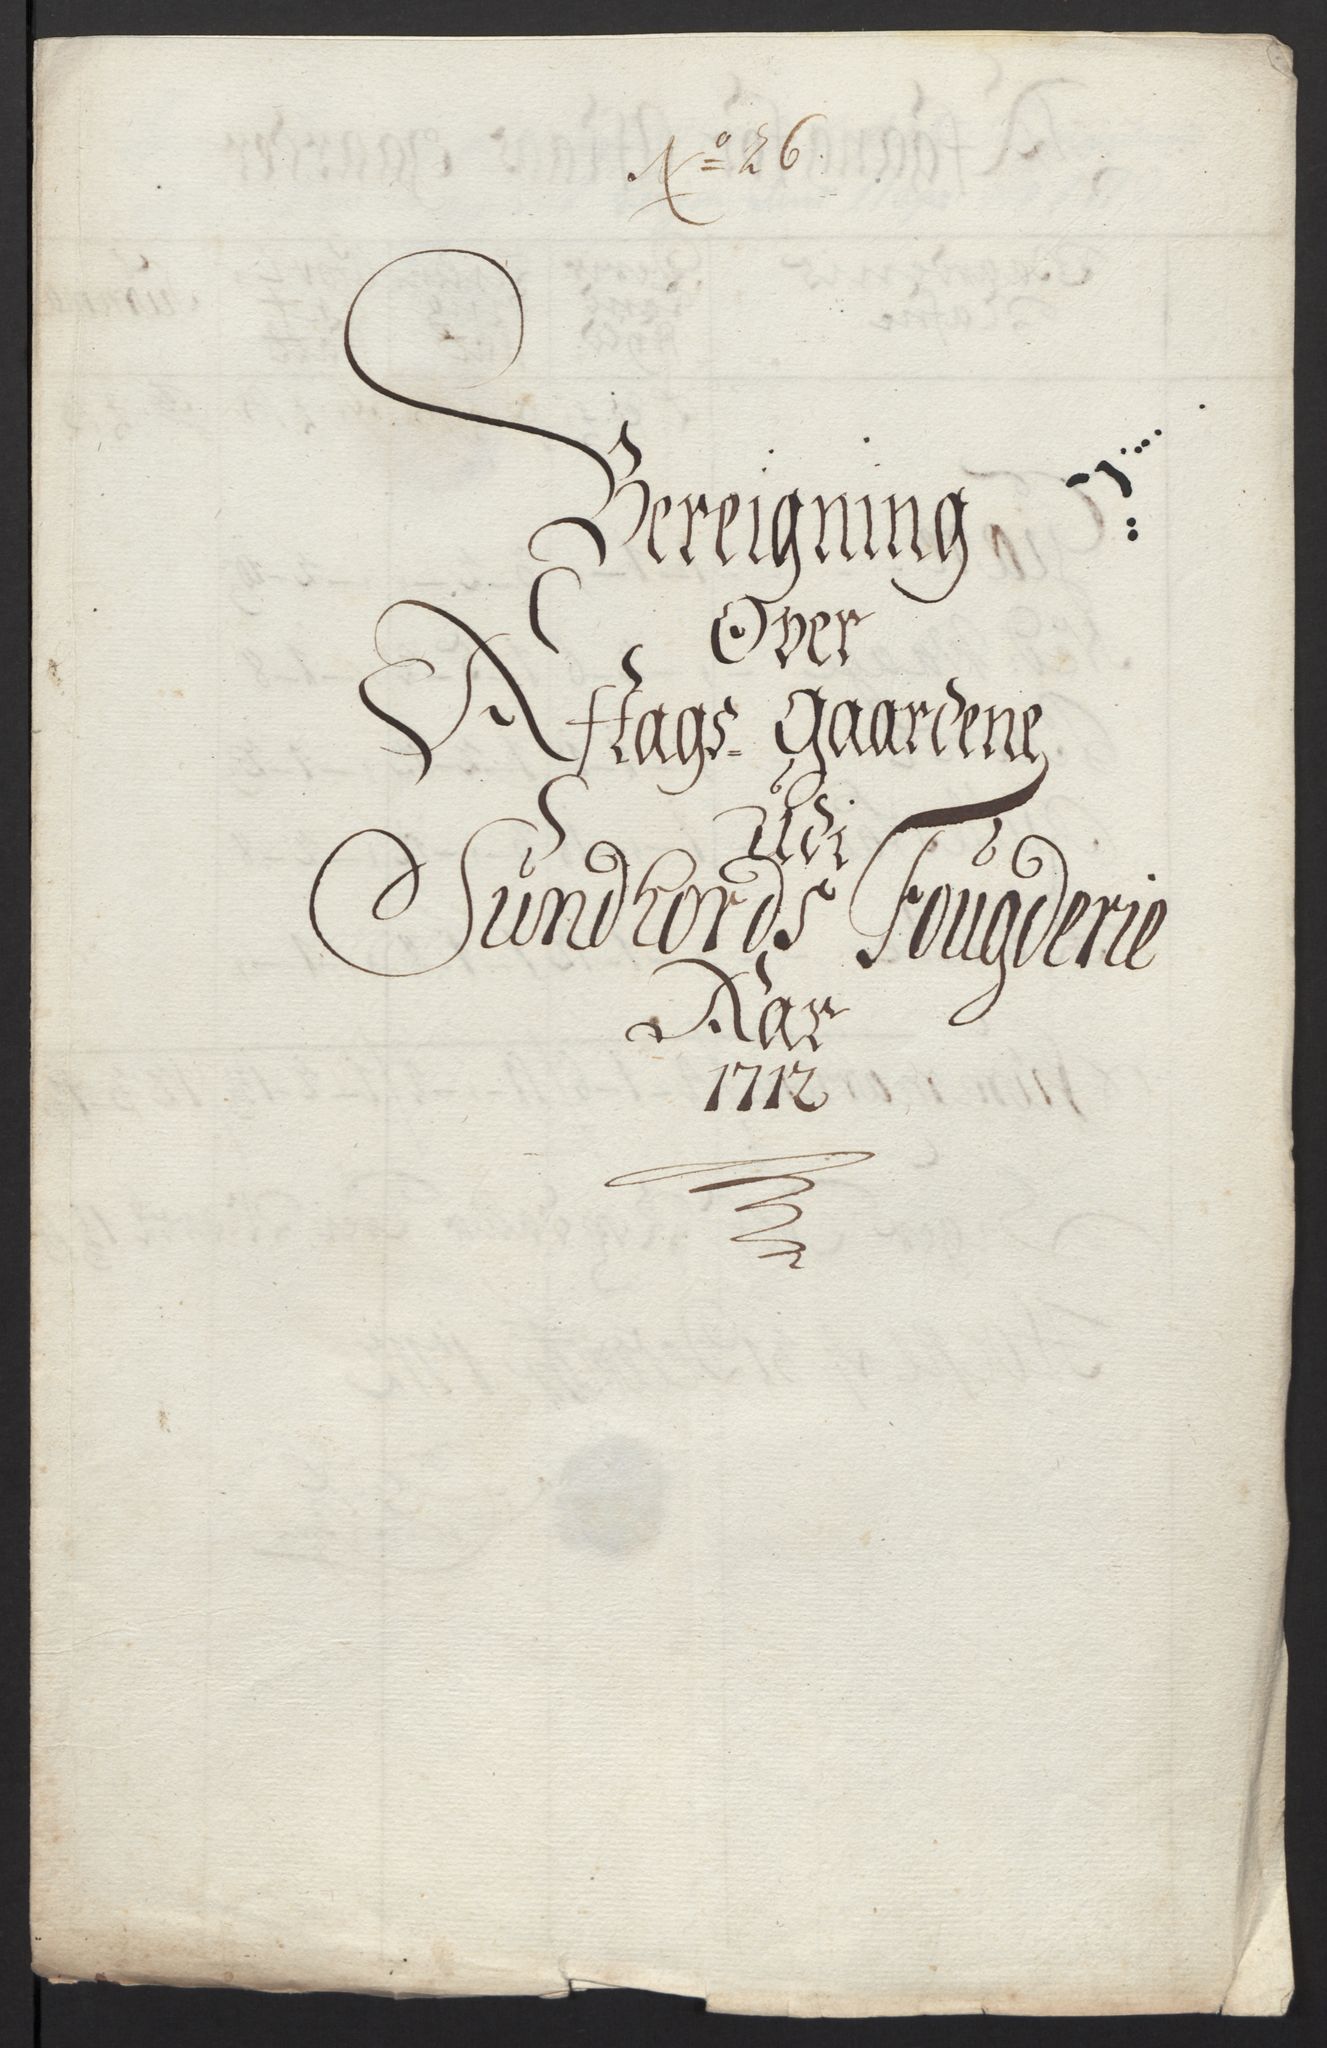 No 26
Bereigning
Over
Aftags- Gaardene
Udi
Sundhords Fougderie
Aar
1712